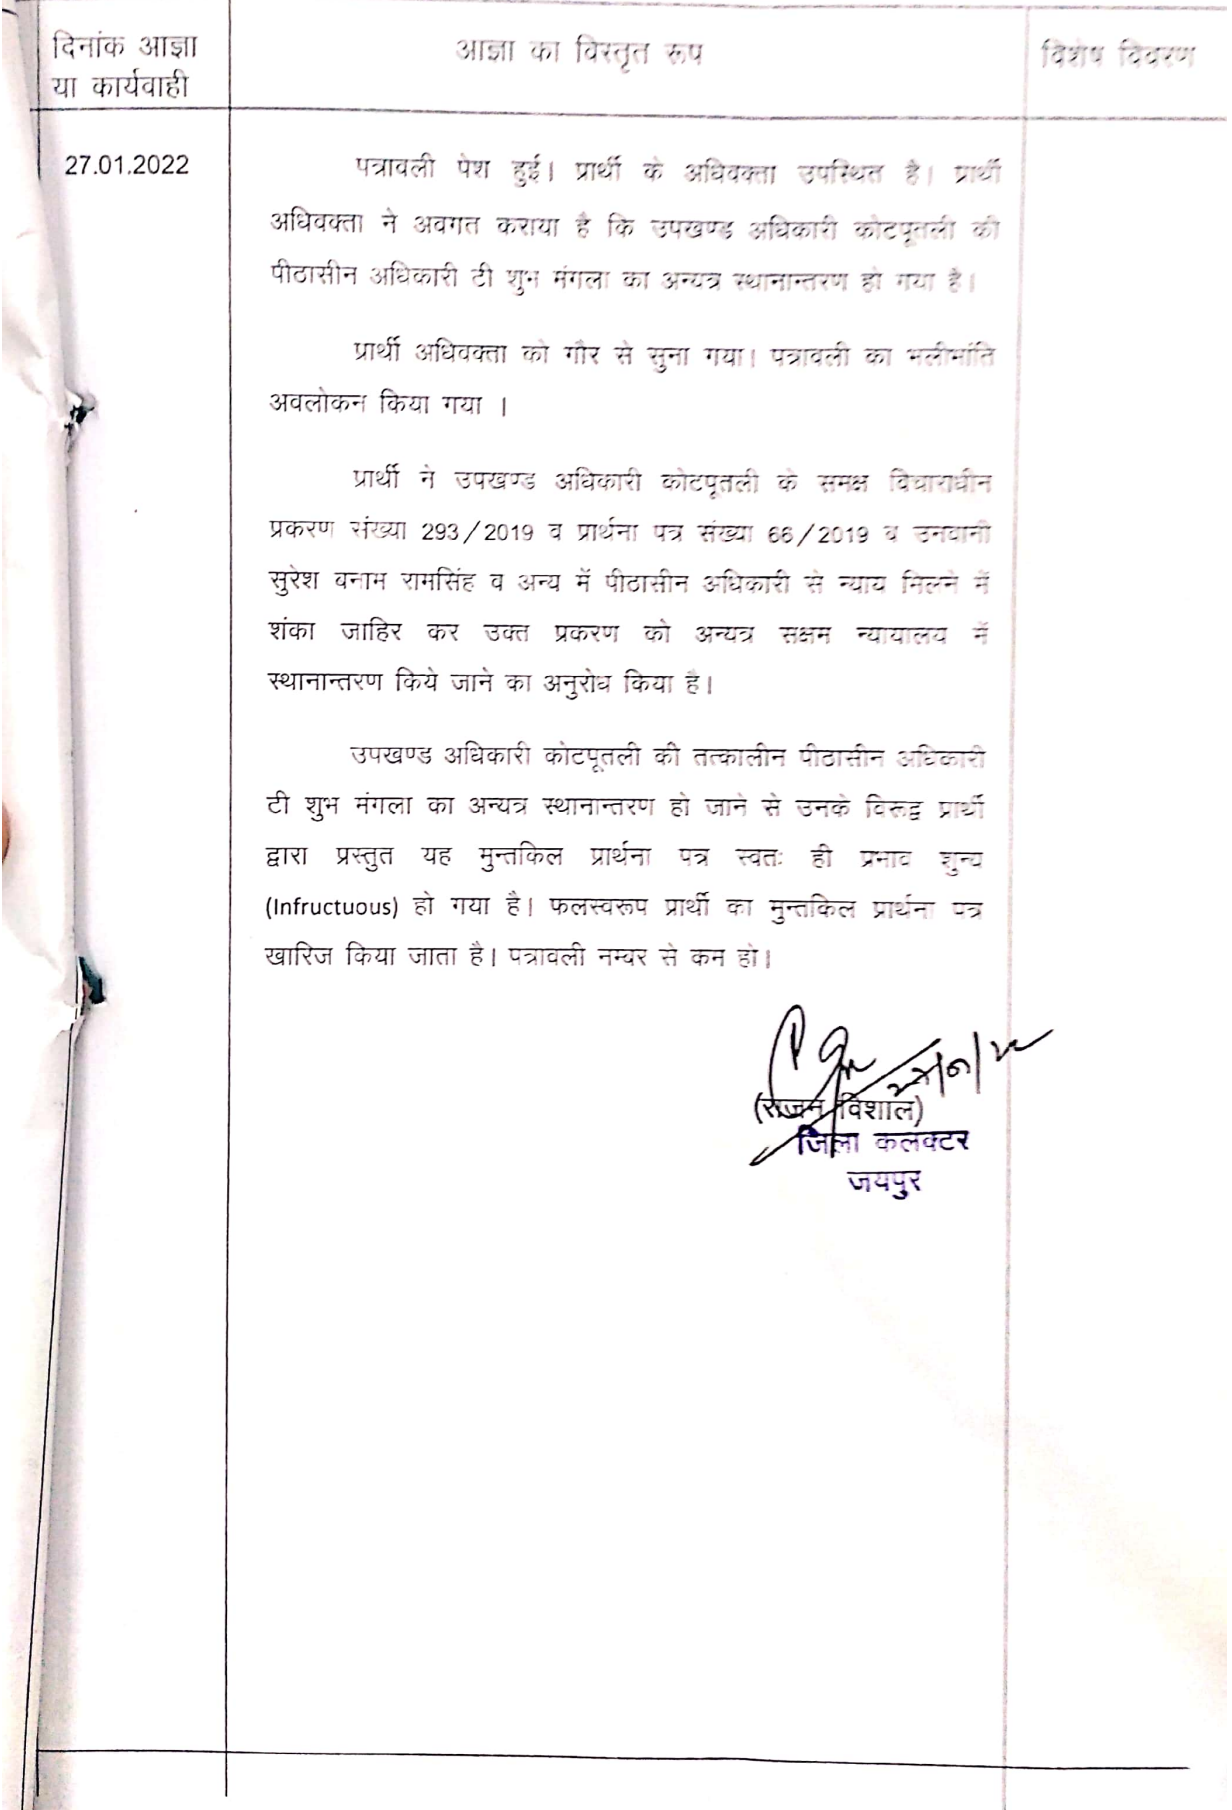 दिनांक आज्ञा
या कार्यवाही
आज्ञा का विस्तृत रूप
विशेष विवरण
27.01.2022
पत्रावली पेश हुई। प्रार्थी के अधिवक्ता उपस्थित है। प्रार्थी
अधिवक्ता ने अवगत कराया है कि उपखण्ड अधिकारी कोटपूतली की
पीठासीन अधिकारी टी शुभ मंगला का अन्यत्र स्थानान्तरण हो गया है।
प्रार्थी अधिवक्ता को गौर से सुना गया। पत्रावली का भलीभांति
अवलोकन किया गया ।
प्रार्थी ने उपखण्ड अधिकारी कोटपूतली के समक्ष विचाराधीन
प्रकरण संख्या 293/2019 व प्रार्थना पत्र संख्या 66/2019 व उनवानी
सुरेश बनाम रामसिंह व अन्य में पीठासीन अधिकारी से न्याय मिलने में
शंका जाहिर कर उक्त प्रकरण को अन्यत्र सक्षम न्यायालय में
स्थानान्तरण किये जाने का अनुरोध किया है।
उपखण्ड अधिकारी कोटपूतली की तत्कालीन पीठासीन अधिकारी
टी शुभ मंगला का अन्यत्र स्थानान्तरण हो जाने से उनके विरूद्व प्रार्थी
द्वारा प्रस्तुत यह मुन्तकिल प्रार्थना पत्र स्वतः ही प्रभाव शुन्य
(Infructuous) हो गया है। फलस्वरूप प्रार्थी का मुन्तकिल प्रार्थना पत्र
खारिज किया जाता है। पत्रावली नम्बर से कम हो।
(राजन विशाल)
जिला कलक्टर
जयपुर